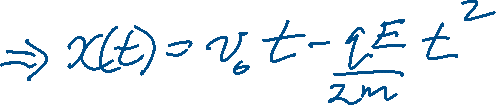 ⇒ x(t) = v₀ t - qE/2m t²